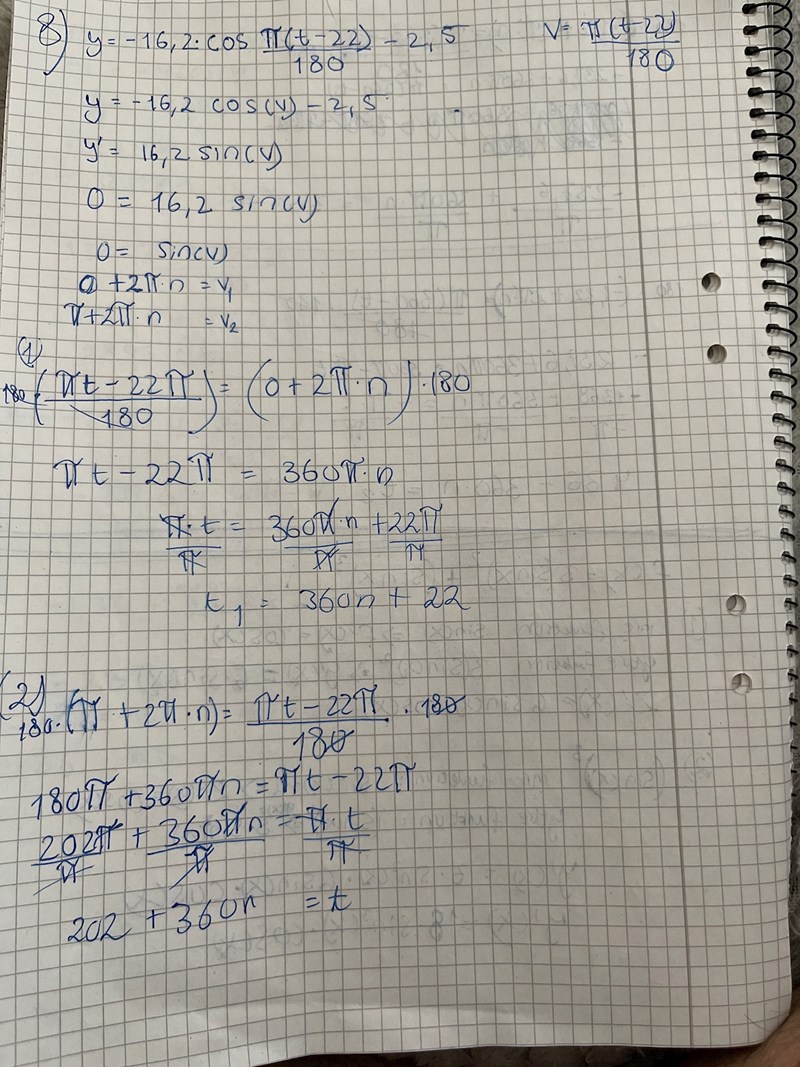 8) y = -16,2 · cos π(t-22)/180 - 2,5 V = π(t-22)/180
y = -16,2 cos(v) - 2,5
y' = 16,2 sin(v)
0 = 16,2 sin(v)
0 = sin(v)
0 + 2π·n = v₁
π + 2π·n = v₂
(1)
180·(πt - 22π/180) = (0 + 2π·n)·180
πt - 22π = 360π·n
π·t/π = 360π·n/π + 22π/π
t₁ = 360n + 22
(2)
180·(π + 2π·n) = πt - 22π/180 · 180
180π + 360πn = πt - 22π
202π/π + 360πn/π = π·t/π
202 + 360n = t